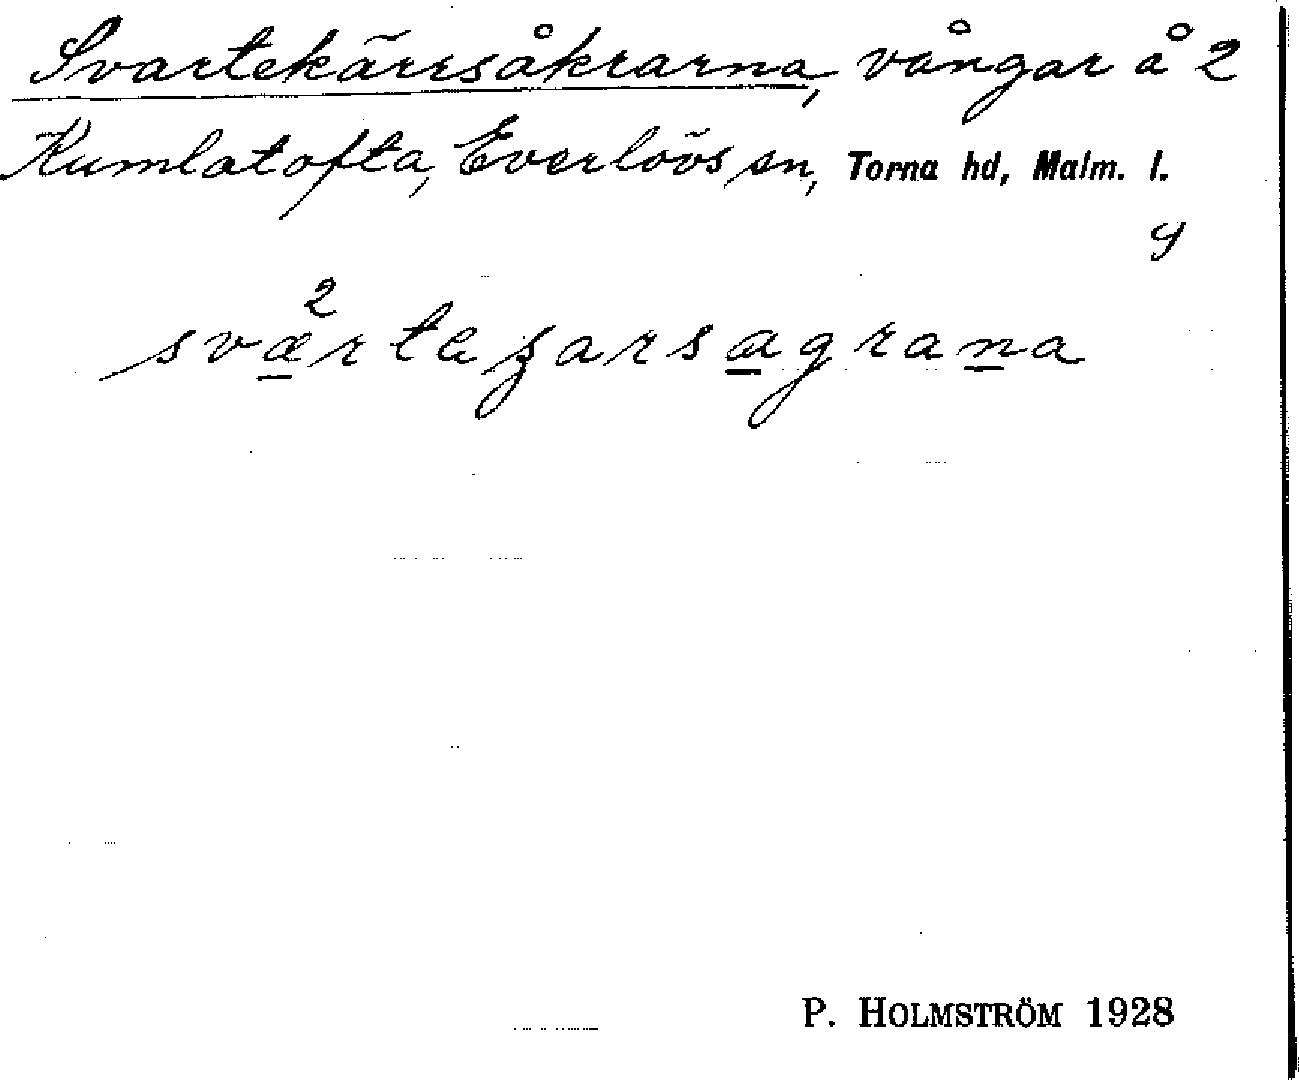 Svartekärrsåkrarna, vångar å 2
Kumlatofta, Everlövs sn, Torna hd, Malm. l.
y
2
sværteʒarsagrana
P. HOLMSTRÖM 1928